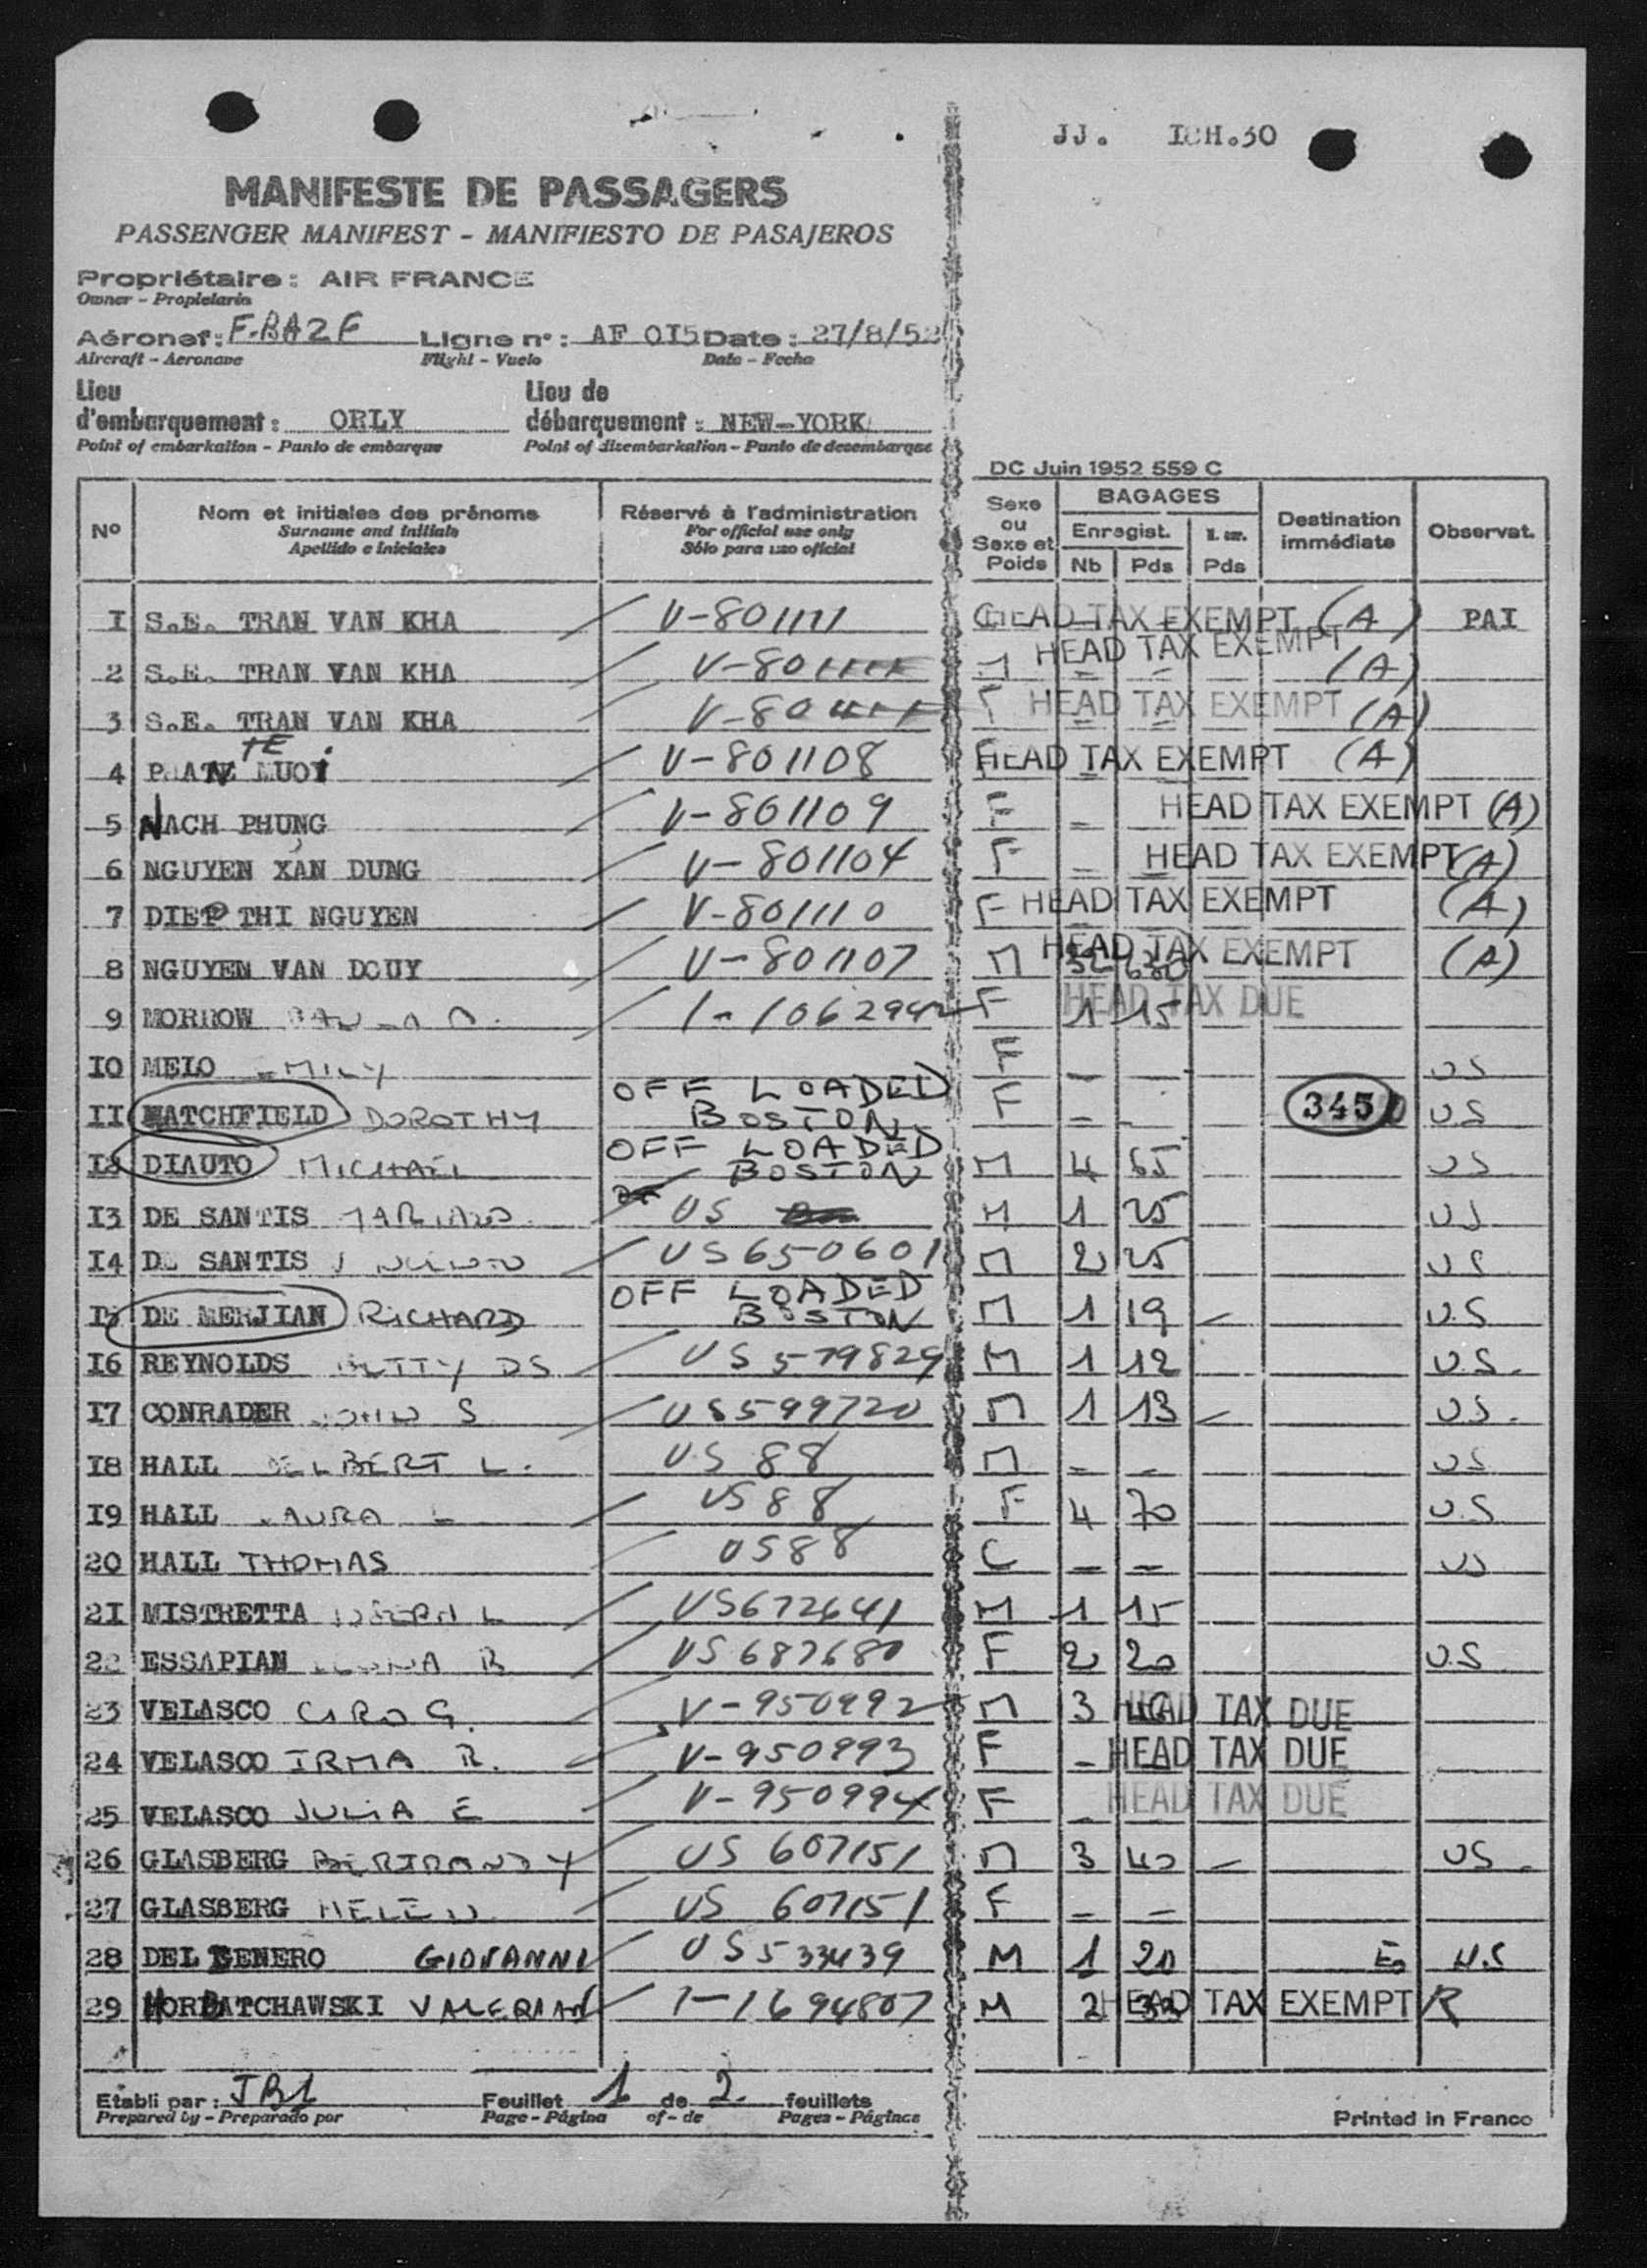 JJ. ICH.30
MANIFESTE DE PASSAGERS
PASSENGER MANIFEST - MANIFIESTO DE PASAJEROS
Propriétaire : AIR FRANCE
Owner - Propietario
Aéronef : F-BAZF Ligne n° : AF 0I5 Date : 27/8/52
Aircraft - Aeronave Flight - Vuelo Date - Fecha
Lieu d'embarquement : ORLY Lieu de débarquement : NEW-YORK
Point of embarkation - Punto de embarque Point of disembarkation - Punto de desembarque
DC Juin 1952 559 C
N° Nom et initiales des prénoms Réservé à l'administration Sexe ou Sexe et Poids BAGAGES Destination immédiate Observat.
Surname and initials For official use only Enregist.
Apellido e iniciales Sólo para uso oficial Nb Pds Pds
I S.E. TRAN VAN KHA V-801111 HEAD TAX EXEMPT (A) PAI
2 S.E. TRAN VAN KHA V-80 M HEAD TAX EXEMPT (A)
3 S.E. TRAN VAN KHA V-80 F HEAD TAX EXEMPT (A)
4 V-801108 HEAD TAX EXEMPT (A)
5 NACH PHUNG V-801109 F - HEAD TAX EXEMPT (A)
6 NGUYEN XAN DUNG V-801104 F - HEAD TAX EXEMPT (A)
7 DIEP THI NGUYEN V-801110 F HEAD TAX EXEMPT (A)
8 NGUYEN VAN DOUY V-801107 M HEAD TAX EXEMPT (A)
9 MORROW 1-1062942 F 1 15 HEAD TAX DUE
I0 MELO EMILY F - US
II HATCHFIELD DOROTHY OFF LOADED BOSTON F - - 345 US
I2 DIAUTO MICHAEL OFF LOADED BOSTON M 4 65 US
I3 DE SANTIS MARIANO US M 1 25 US
I4 DE SANTIS US650601 M 2 25 US
I5 DE MERJIAN RICHARD OFF LOADED BOSTON M 1 19 - U.S
I6 REYNOLDS BETTY DS US579829 M 1 12 U.S.
I7 CONRADER JOHN S US599720 M 1 13 - US.
I8 HALL DELBERT L. US 88 M - - US
I9 HALL LAURA L US 88 F 4 70 U.S
20 HALL THOMAS US88 C - - US
2I MISTRETTA JOSEPH L US672641 M 1 15
22 ESSAPIAN B US687680 F 2 20 U.S
23 VELASCO CIRO G. V-950992 M 3 40 HEAD TAX DUE
24 VELASCO IRMA R. V-950993 F - HEAD TAX DUE
25 VELASCO JULIA E V-950994 F - HEAD TAX DUE
26 GLASBERG BERTRAND Y US 607151 M 3 40 - US.
27 GLASBERG HELEN US 607151 F - -
28 DEL GENERO GIOVANNI US533439 M 1 20 U.S
29 HORBATCHAWSKI VALERIAN 1-1694807 M 2 33 HEAD TAX EXEMPT R
Etabli par : JB1 Feuillet 1 de 2 feuillets
Prepared by - Preparado por Page - Página of - de Pages - Páginas
Printed in France